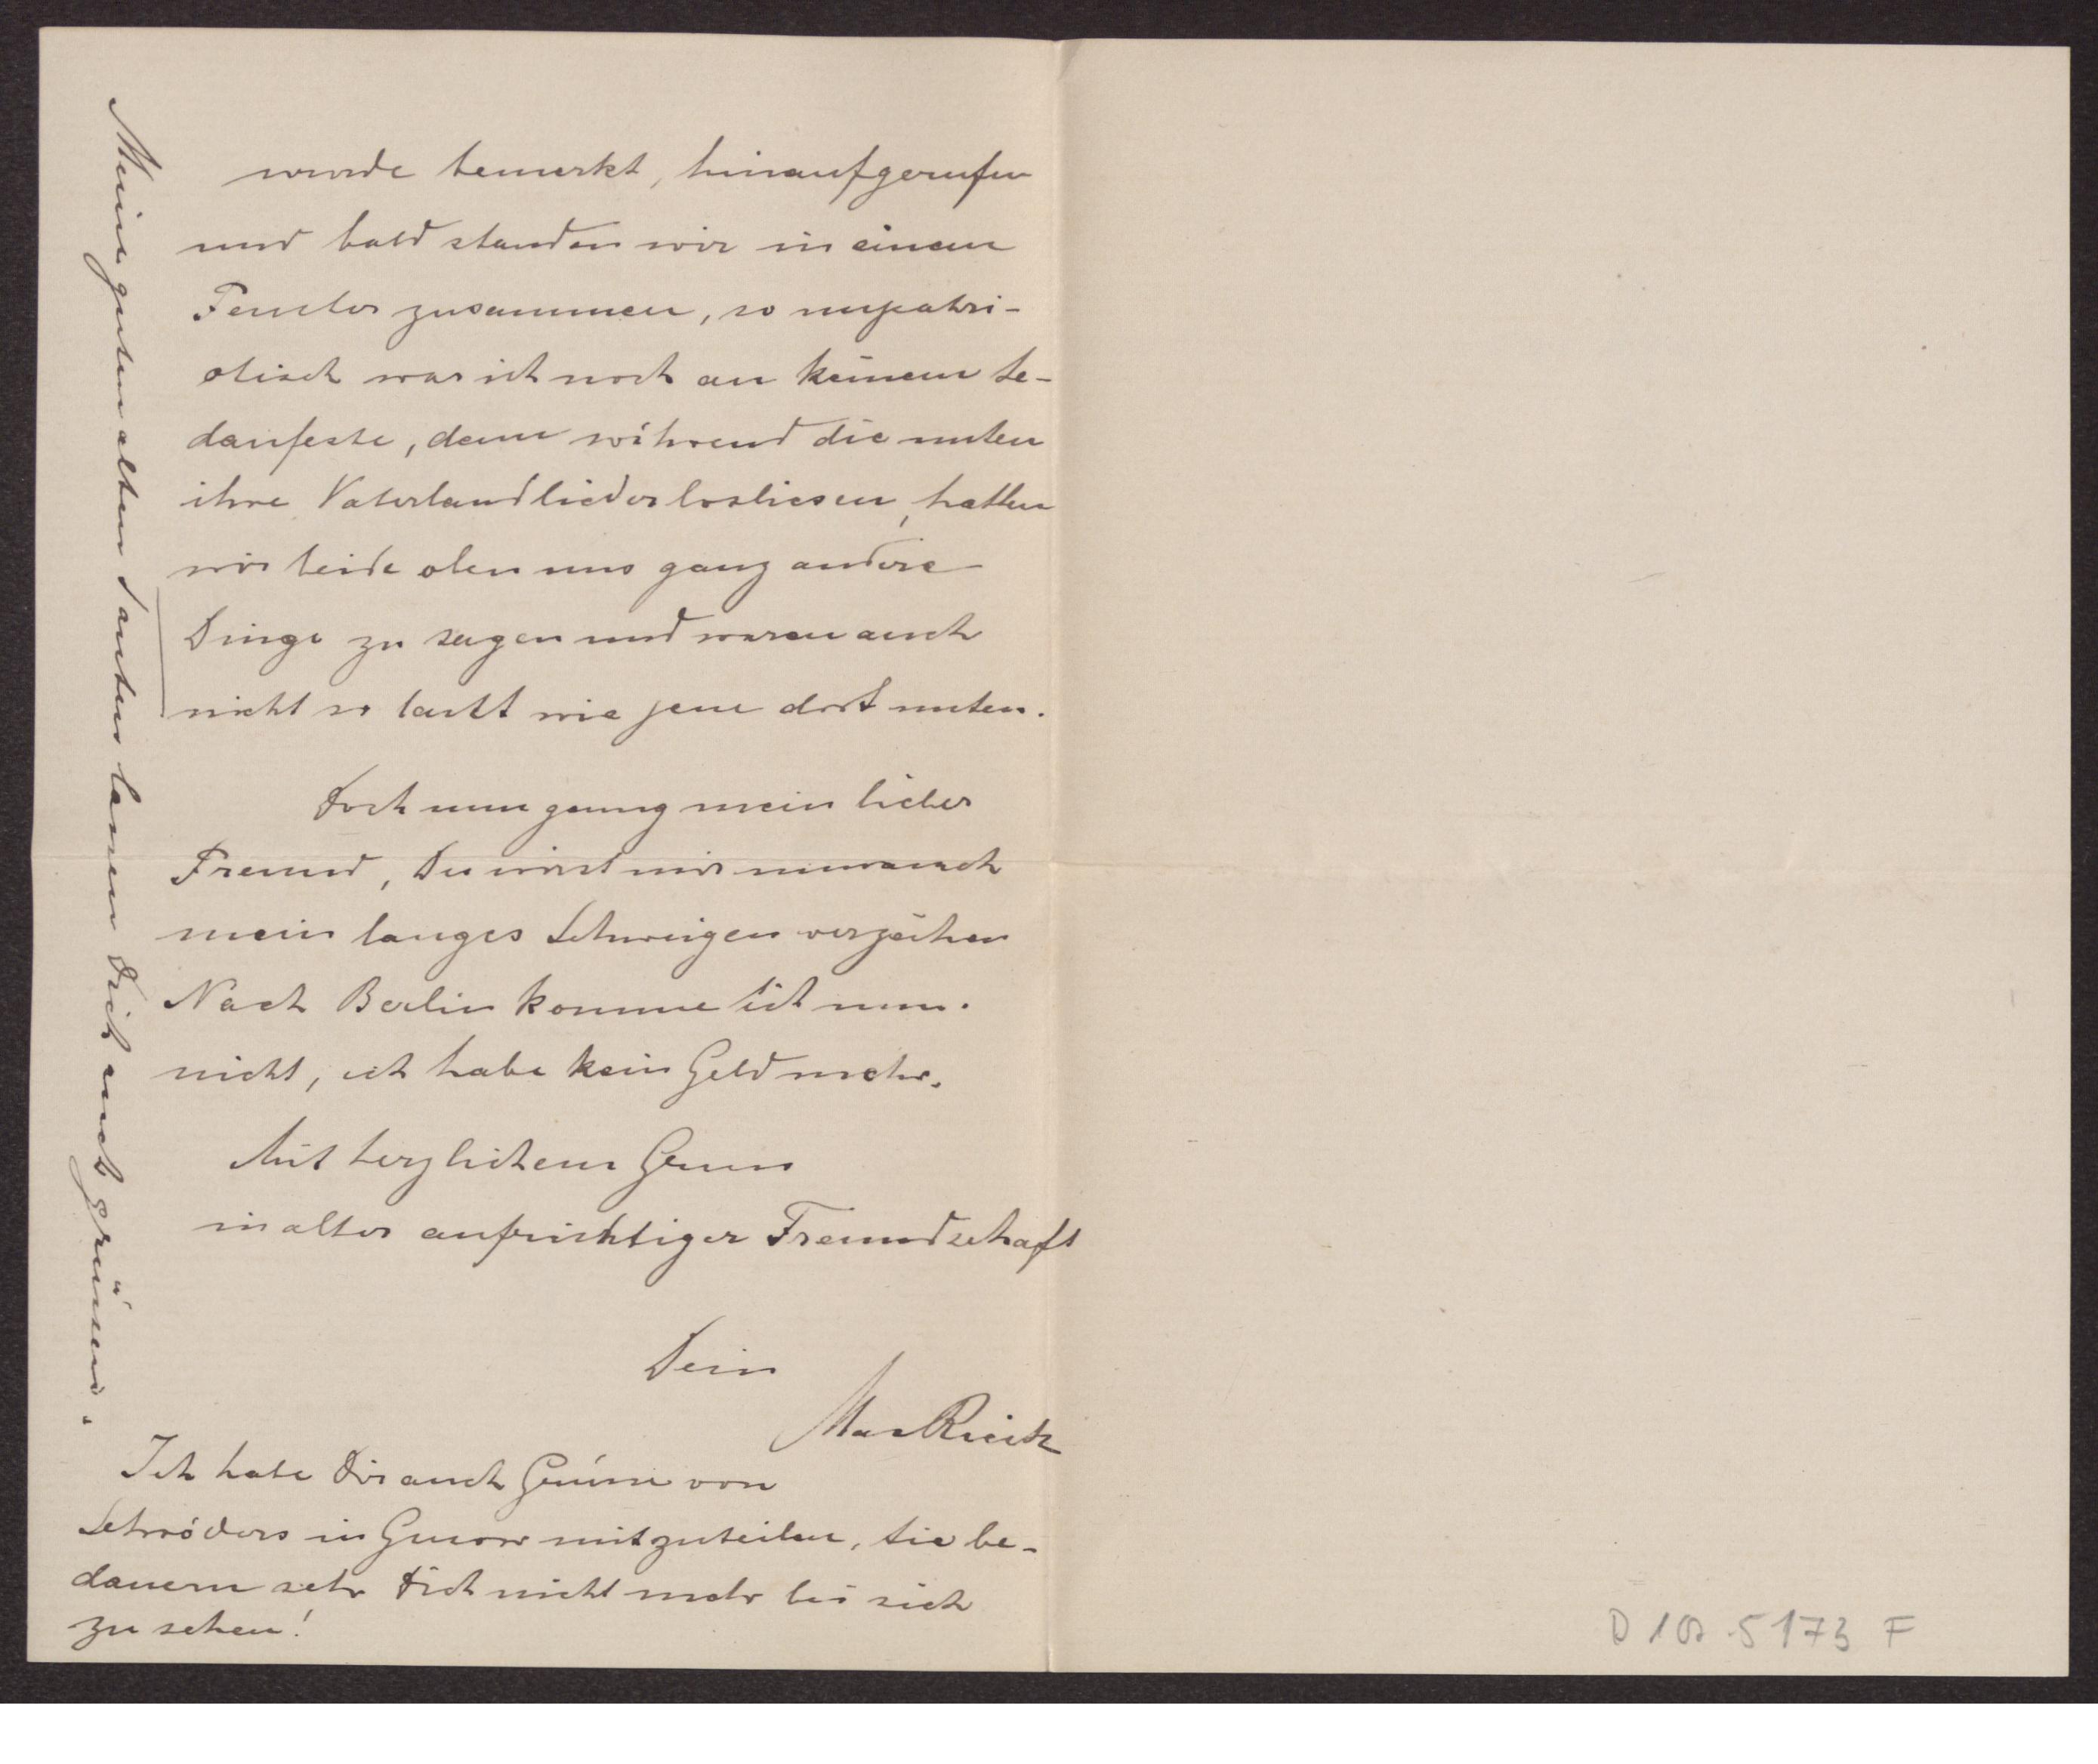 wurde bemerkt, hinaufgerufen
und bald standen wir in einem
Fenster zusammen, so unpatri-
otisch war ich noch an keinem Se-
danfeste, denn während die unten
ihre Vaterlandlieder losliesen, hatten
wir beide oben uns ganz andere
Dinge zu sagen und waren auch
nicht so lautt wie jene dort unten.
Doch nun genug mein lieber
Freund, Du wirst mir nun auch
mein langes Schweigen verzeihen
Nach Berlin komme ich nun.
nicht, ich habe kein Geld mehr.
Mit herzlichem Gruss
in alter aufrichtiger Freundschaft
Dein
Max
Ich habe Dir auch Grüsse von
Schröders in mitzuteilen, Sie be-
dauern sehr Dich nicht mehr bei sich
zu sehen!
Meine guten alten Tanten lassen Dich auch grüssen.
D 107.5173 F